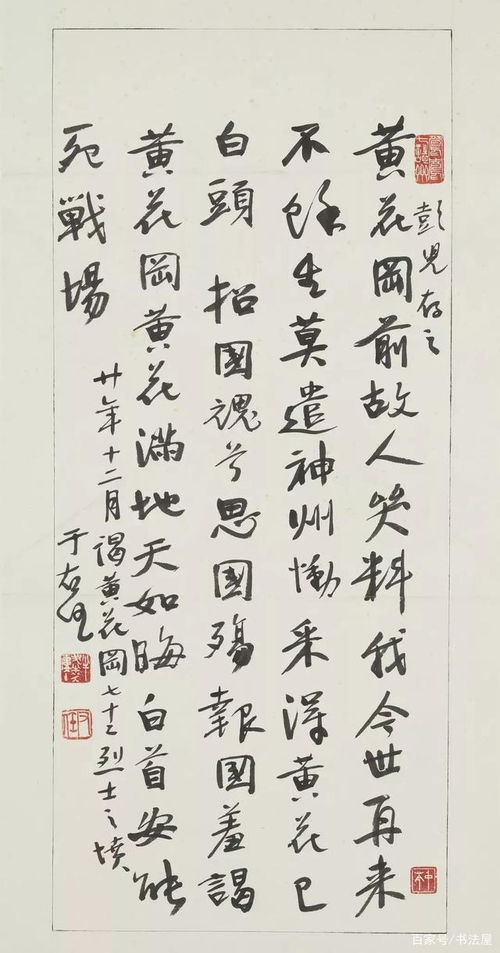 彭兒存之
黄花岡前故人哭料我今世再来
不餘生莫遣神州慟采得黄花已
白頭 招國魂兮思國殤報國羞謁
黄花岡黄花滿地天如晦白首安能
死戰場
廿年十二月謁黄花岡七十二烈士之墳
于右任
右任
百家号/书法屋